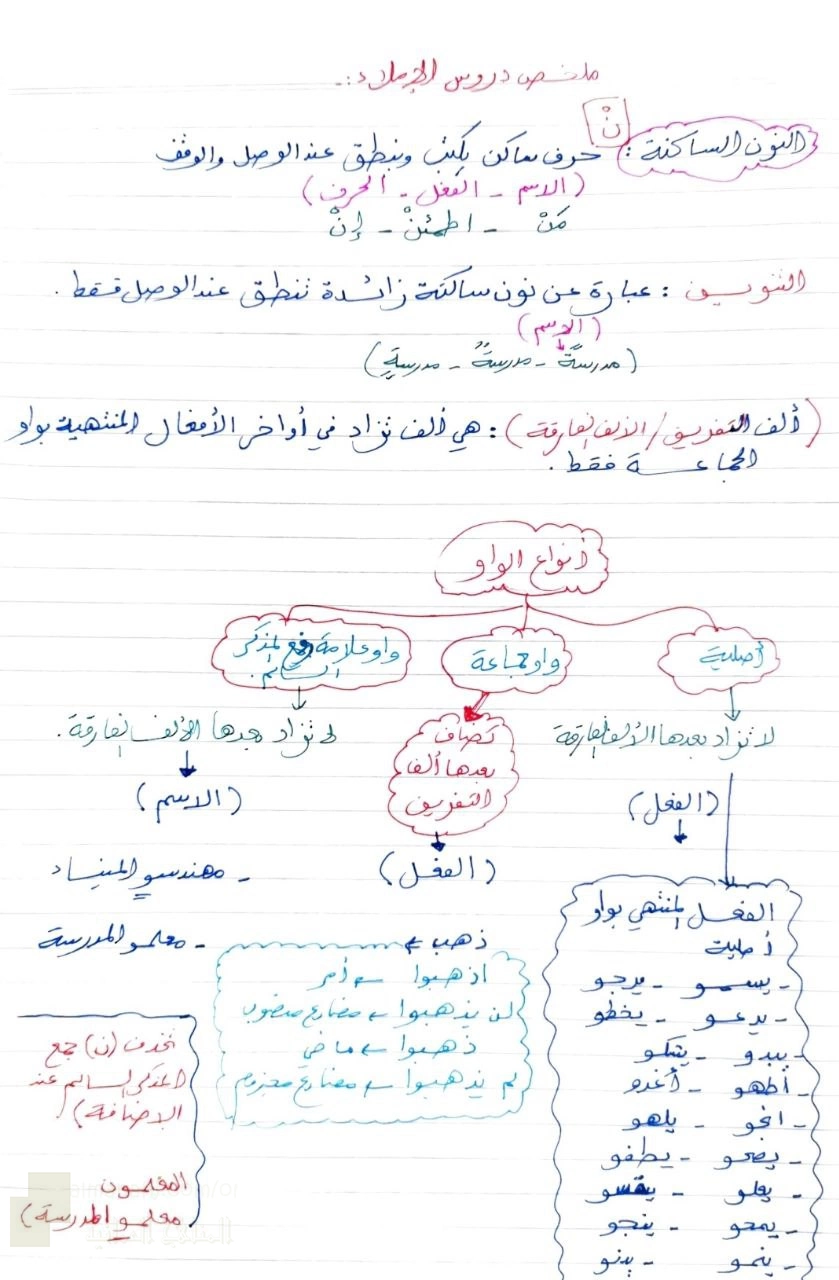 ملخص دروس الإملاء :-
نْ
النون الساكنة : حرف ساكن يكتب وينطق عند الوصل والوقف
(الاسم - الفعل - الحرف)
مَنْ - اطمئنْ - إنْ
التنوين : عبارة عن نون ساكنة زائدة تنطق عند الوصل فقط .
(الاسم)
(مدرسةً - مدرسةٌ - مدرسةٍ)
(ألف التفريق / الألف الفارقة) : هي ألف تزاد في أواخر الأفعال المنتهية بواو
الجماعة فقط .
أنواع الواو
أصلية
واو جماعة
واو علامة رفع المذكر
السالم .
لا تزاد بعدها الألف الفارقة
تضاف
بعدها ألف
التفريق
لا تزاد بعدها الألف الفارقة .
(الفعل)
(الفعل)
(الاسم)
الفعل المنتهي بواو
أصلية
- يسمو - يرجو
- يدعو - يخطو
- يبدو - يشكو
- أطهو - أغدو
- انجو - يلهو
- يصحو - يطفو
- يعلو - يقسو
- يمحو - ينجو
- ينمو - يدنو
ذهب ←
اذهبوا ← أمر
لن يذهبوا ← مضارع منصوب
ذهبوا ← ماضي
لم يذهبوا ← مضارع مجزوم
- مهندسو الميناء
- معلمو المدرسة
تحذف (ن) جمع
المذكر السالم عند
الإضافة)
المعلمون
معلمو المدرسة)